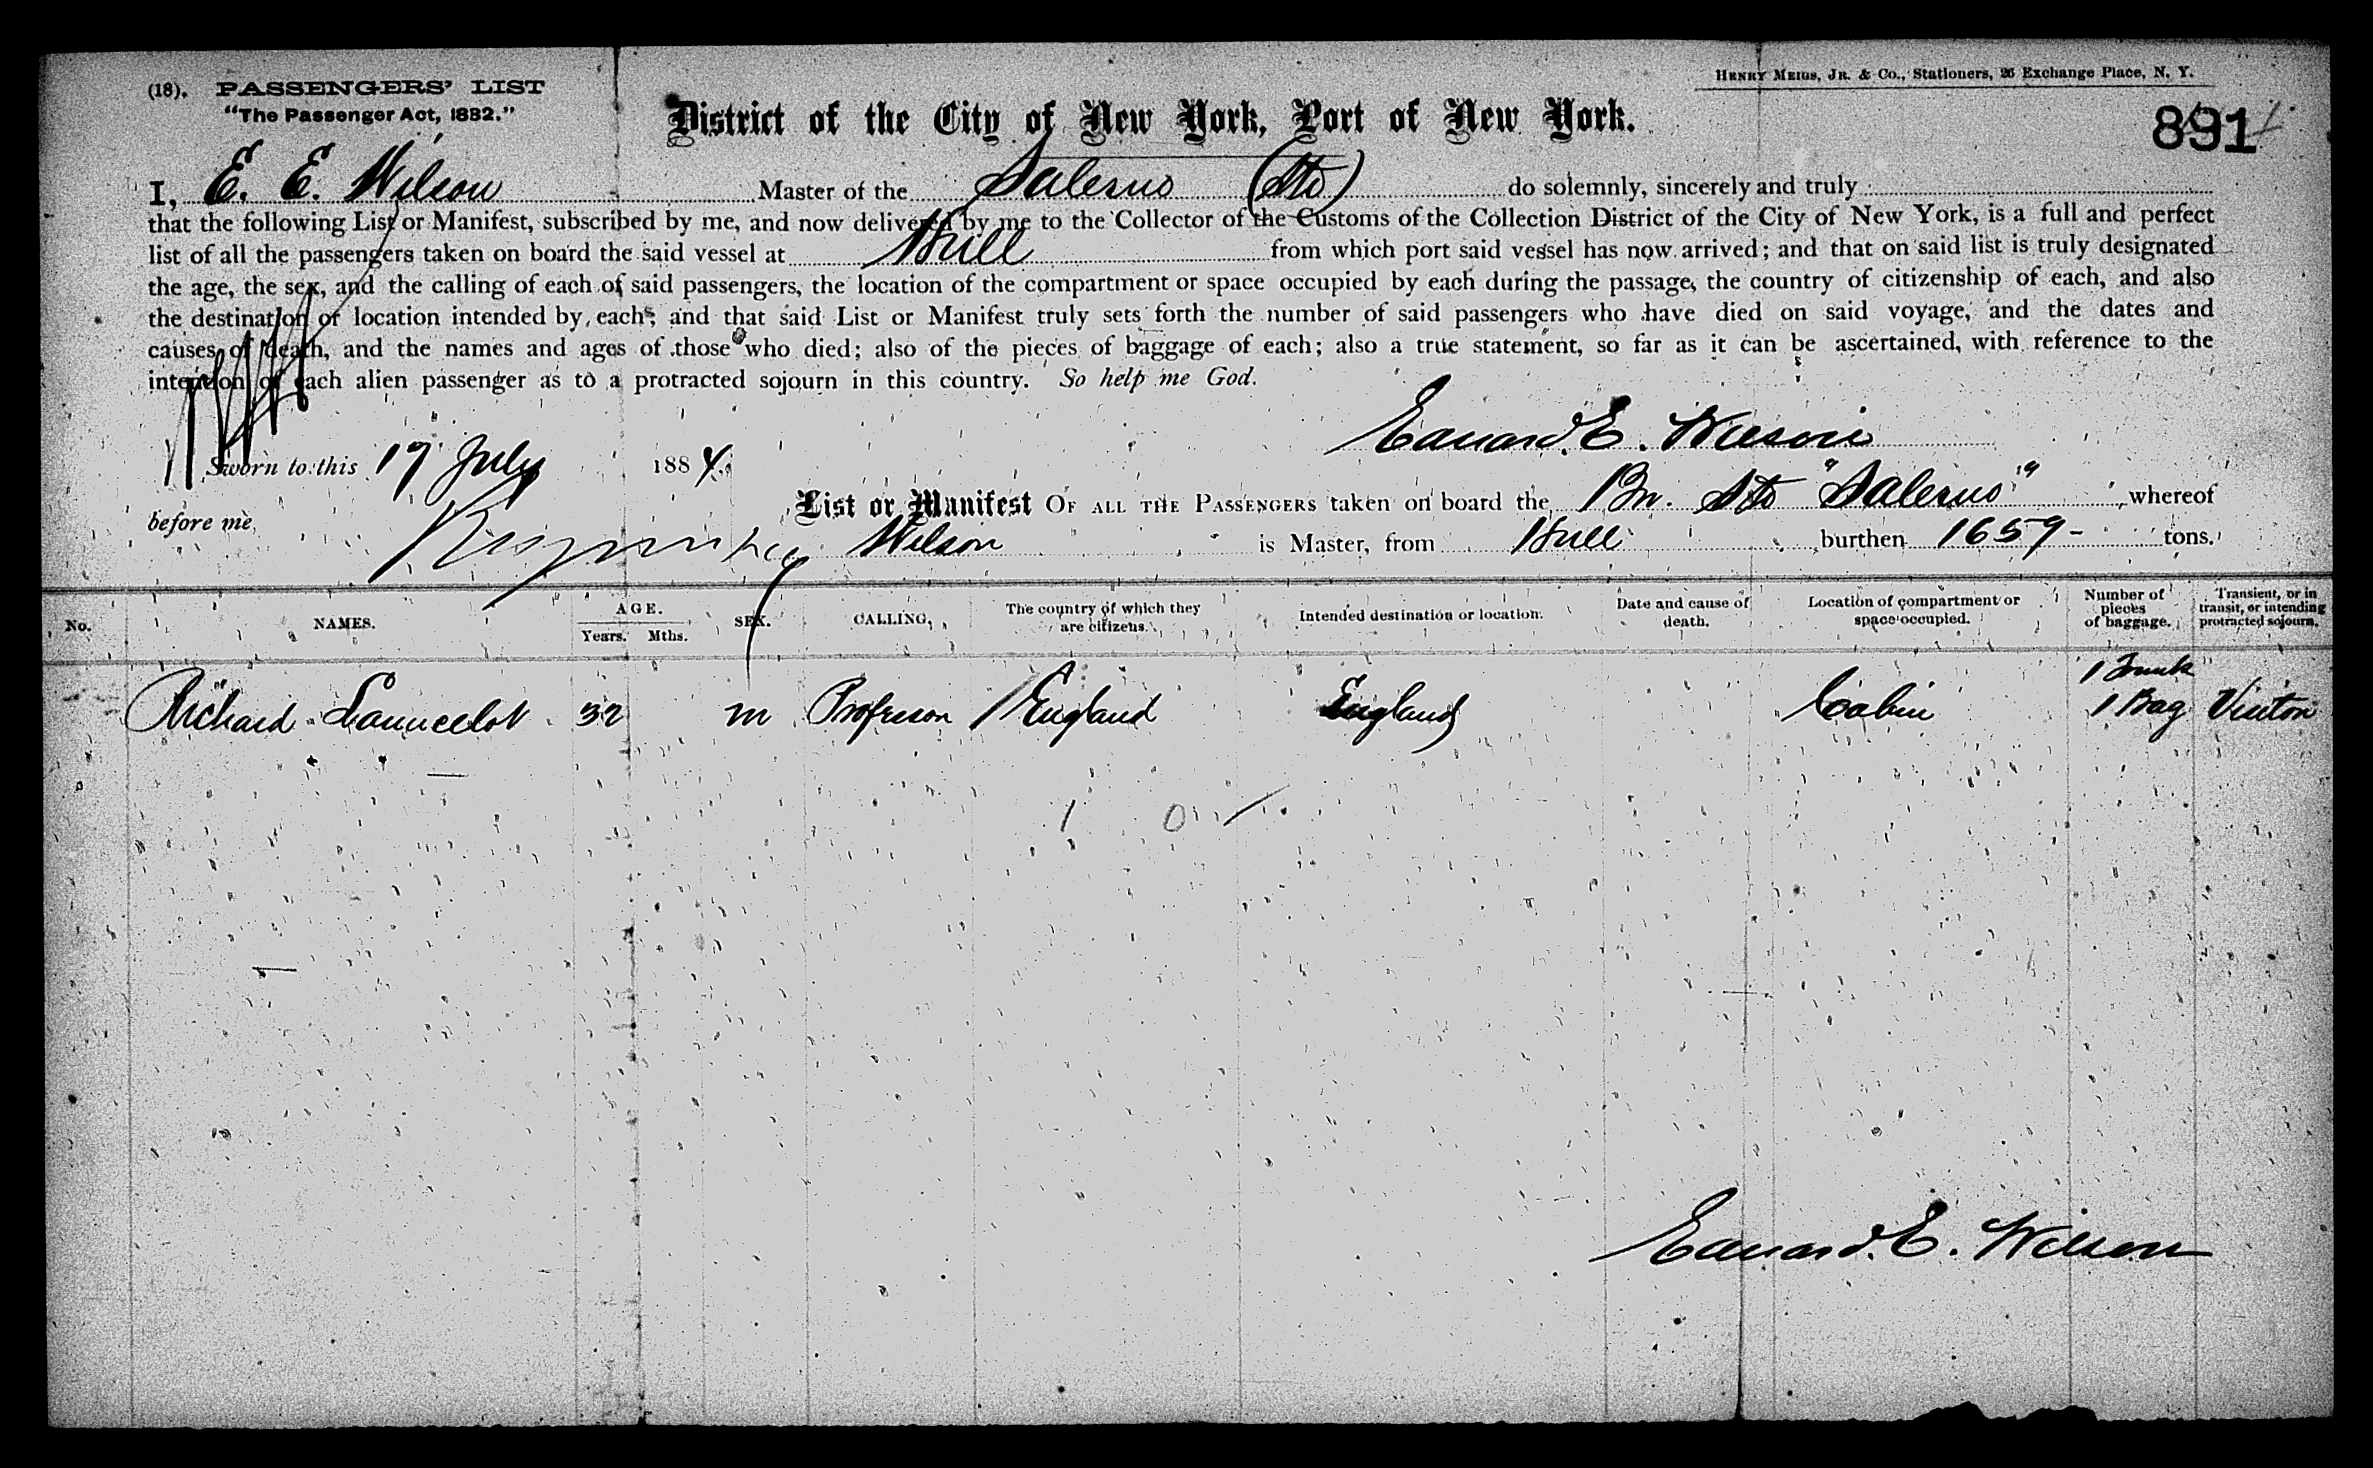 (18). PASSENGERS' LIST
"The Passenger Act, 1882."
HENRY MEIGS, JR. & CO., Stationers, 26 Exchange Place, N. Y.
District of the City of New York, Port of New York.
891
I, E. E. Wilson Master of the Salerno (Str) do solemnly, sincerely and truly
that the following List or Manifest, subscribed by me, and now delivered by me to the Collector of the Customs of the Collection District of the City of New York, is a full and perfect
list of all the passengers taken on board the said vessel at Hull from which port said vessel has now arrived; and that on said list is truly designated
the age, the sex, and the calling of each of said passengers, the location of the compartment or space occupied by each during the passage, the country of citizenship of each, and also
the destination or location intended by each; and that said List or Manifest truly sets forth the number of said passengers who have died on said voyage, and the dates and
causes of death, and the names and ages of those who died; also of the pieces of baggage of each; also a true statement, so far as it can be ascertained, with reference to the
intention of each alien passenger as to a protracted sojourn in this country. So help me God.
Edward. E. Wilson
Sworn to this 17 July 1884.
List or Manifest OF ALL THE PASSENGERS taken on board the Br. Str "Salerno" whereof
before me
Wilson is Master, from Hull burthen 1659 - tons.
No. NAMES. AGE. Years. Mths. SEX. CALLING. The country of which they are citizens. Intended destination or location. Date and cause of death. Location of compartment or space occupied. Number of pieces of baggage. Transient, or in transit, or intending protracted sojourn.
1 Trunk
Richard Launcelot 32 m Professor England England Cabin 1 Bag Visitor
1 0
Edward. E. Wilson